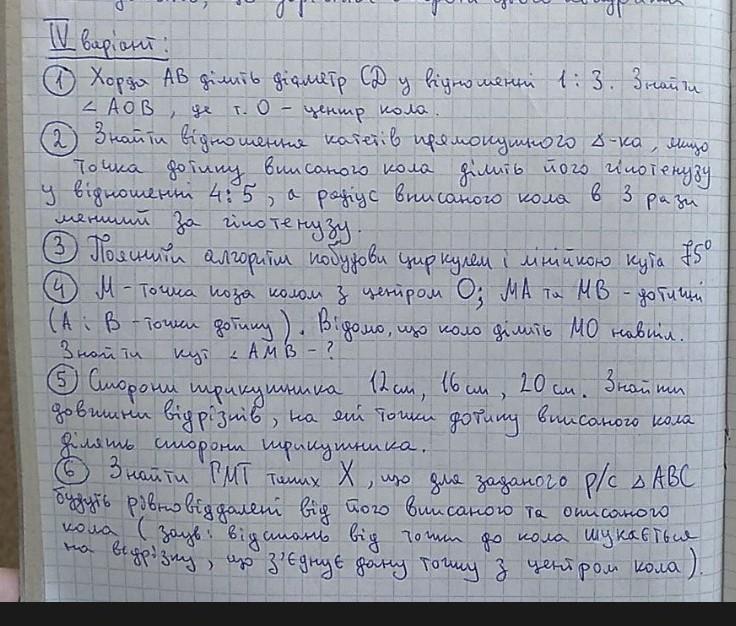 IV варіант:
① Хорда AB ділить діаметр CD у відношенні 1:3. Знайти
∠AOB, де т. O – центр кола.
② Знайти відношення катетів прямокутного Δ-ка, якщо
точка дотику вписаного кола ділить його гіпотенузу
у відношенні 4:5, а радіус вписаного кола в 3 рази
менший за гіпотенузу.
③ Пояснити алгоритм побудови циркулем і лінійкою кута 75°
④ M – точка поза колом з центром O; MA та MB – дотичні
(A і B – точки дотику). Відомо, що коло ділить MO навпіл.
Знайти кут ∠AMB – ?
⑤ Сторони трикутника 12см, 16см, 20см. Знайти
довжини відрізків, на які точки дотику вписаного кола
ділять сторони трикутника.
⑥ Знайти ГМТ таких X, що для заданого р/с ΔABC
будуть рівновіддалені від його вписаного та описаного
кола (заув: відстань від точки до кола шукається
на відрізку, що з'єднує дану точку з центром кола).